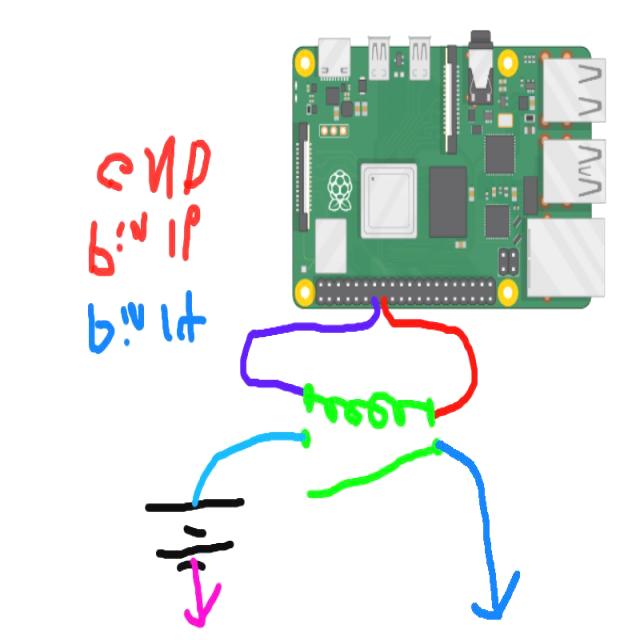 GND
pin 16
pin 14